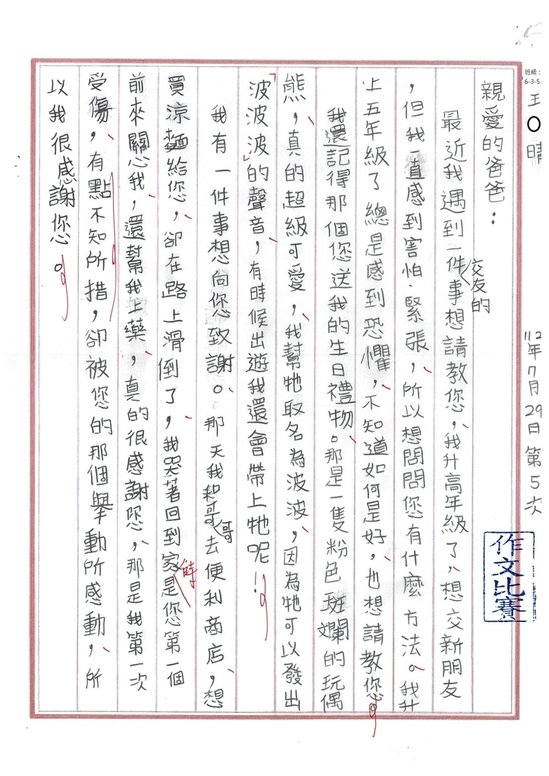 班級：
6-3-5
王O晴
112年7月29日第5次
作文比賽
親愛的爸爸：
最近我遇到一件交友的事想請教您，我升高年級了，想交新朋友
，但我一直感到害怕、緊張，所以想問問您有什麼方法。我升
上五年級了總是感到恐懼，不知道如何是好，也想請教您。
我還記得那個您送我的生日禮物。那是一隻粉色斑斕的玩偶
熊，真的超級可愛，我幫牠取名為波波，因為牠可以發出
「波波波」的聲音，有時候出遊我還會帶上牠呢！
我有一件事想向您致謝。那天我和哥哥去便利商店，想
買涼麵給您，卻在路上滑倒了，我哭著回到家時是您第一個
前來關心我，還幫我上藥，真的很感謝您，那是我第一次
受傷，有點不知所措，卻被您的那個舉動所感動，所
以我很感謝您。